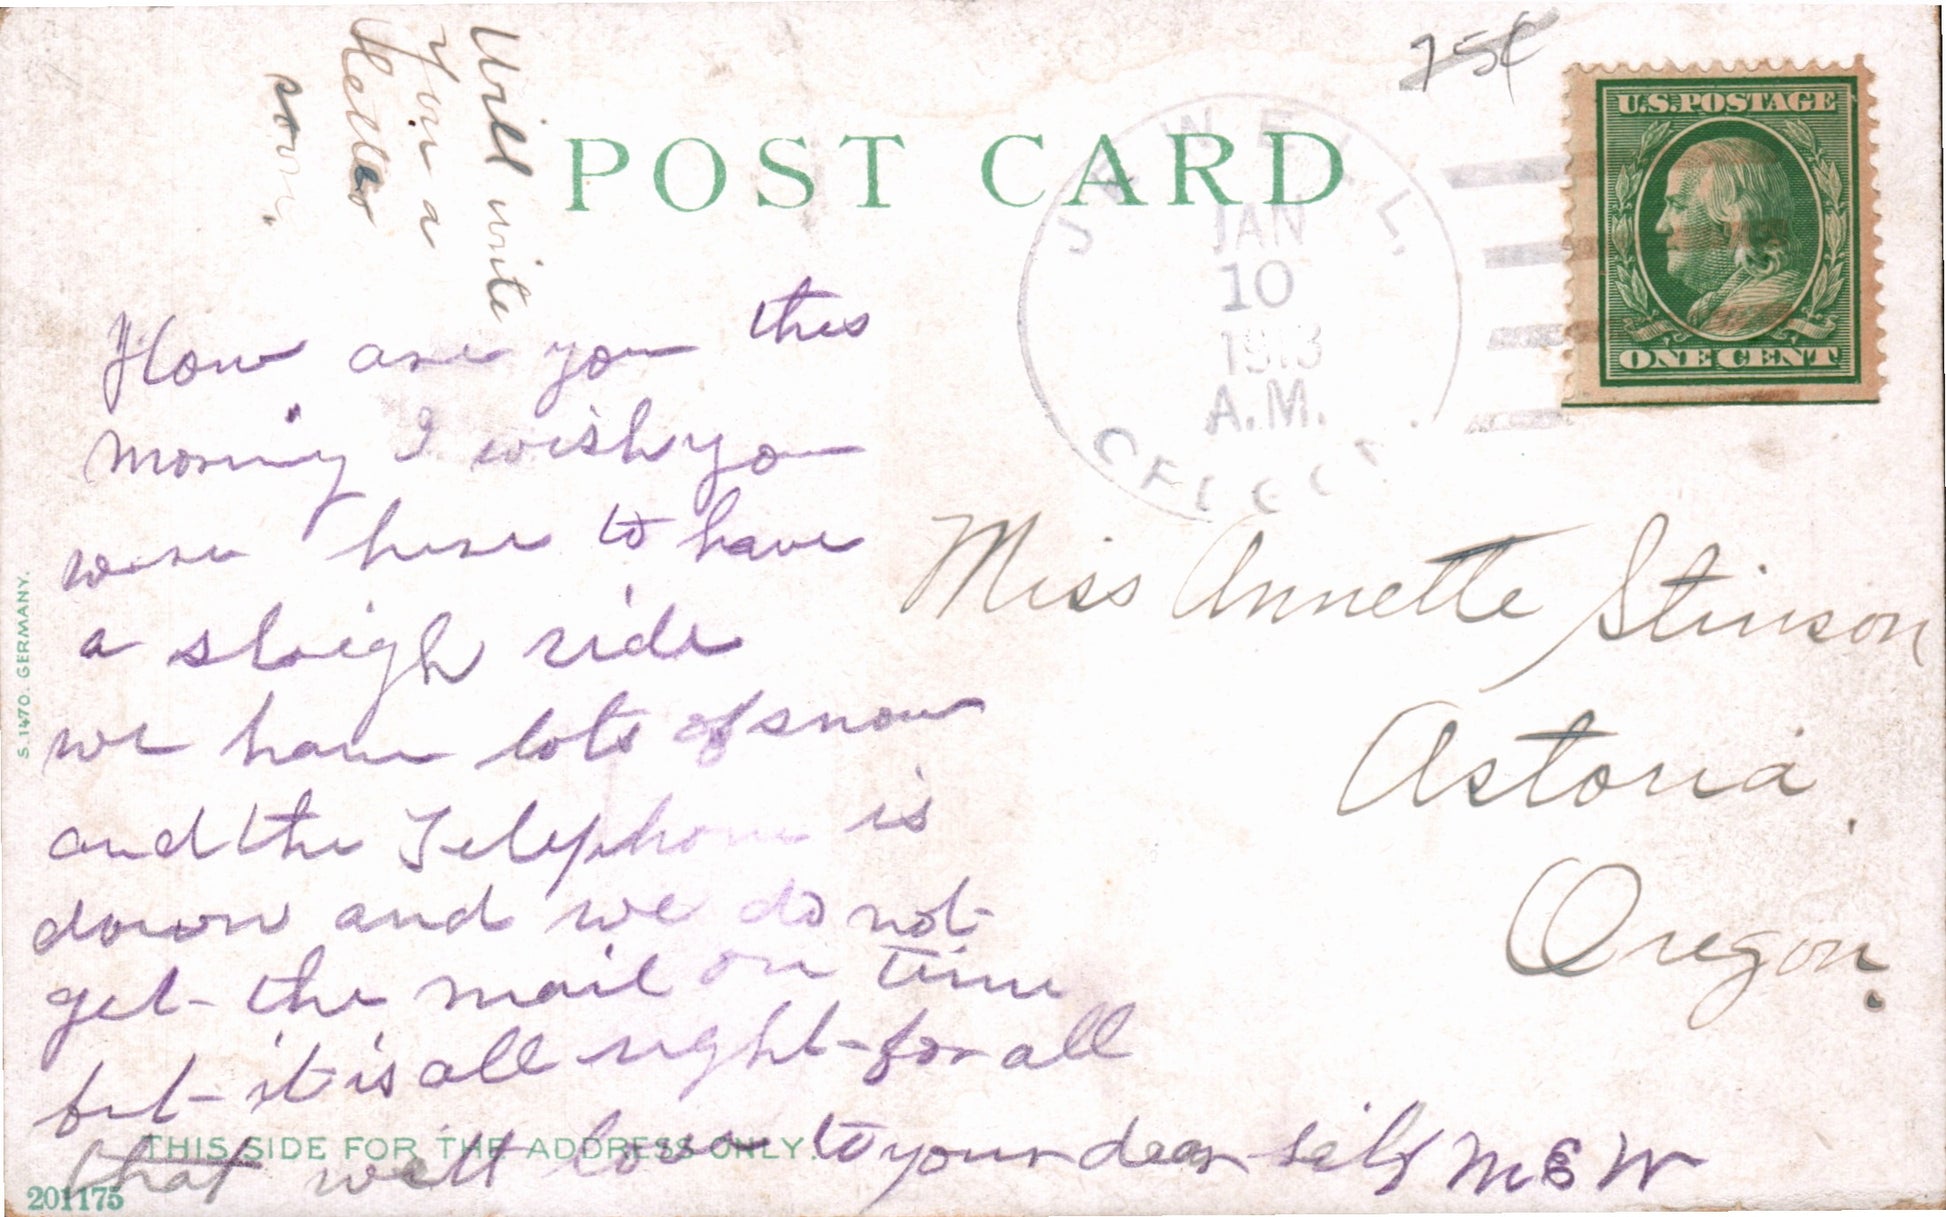 Will write
You a
Letter
soon.
75¢
POST CARD
U.S. POSTAGE
ONE CENT
JEWELL
JAN
10
1913
A.M.
How are you this
morning I wish you
were here to have
a sleigh ride
we have lots of snow
and the Telephone is
down and we do not
get the mail on time
but it is all right for all
that with love to your dear self M E W
Miss Annette Stinson
Astoria
Oregon.
S. 1470. GERMANY.
THIS SIDE FOR THE ADDRESS ONLY.
201175